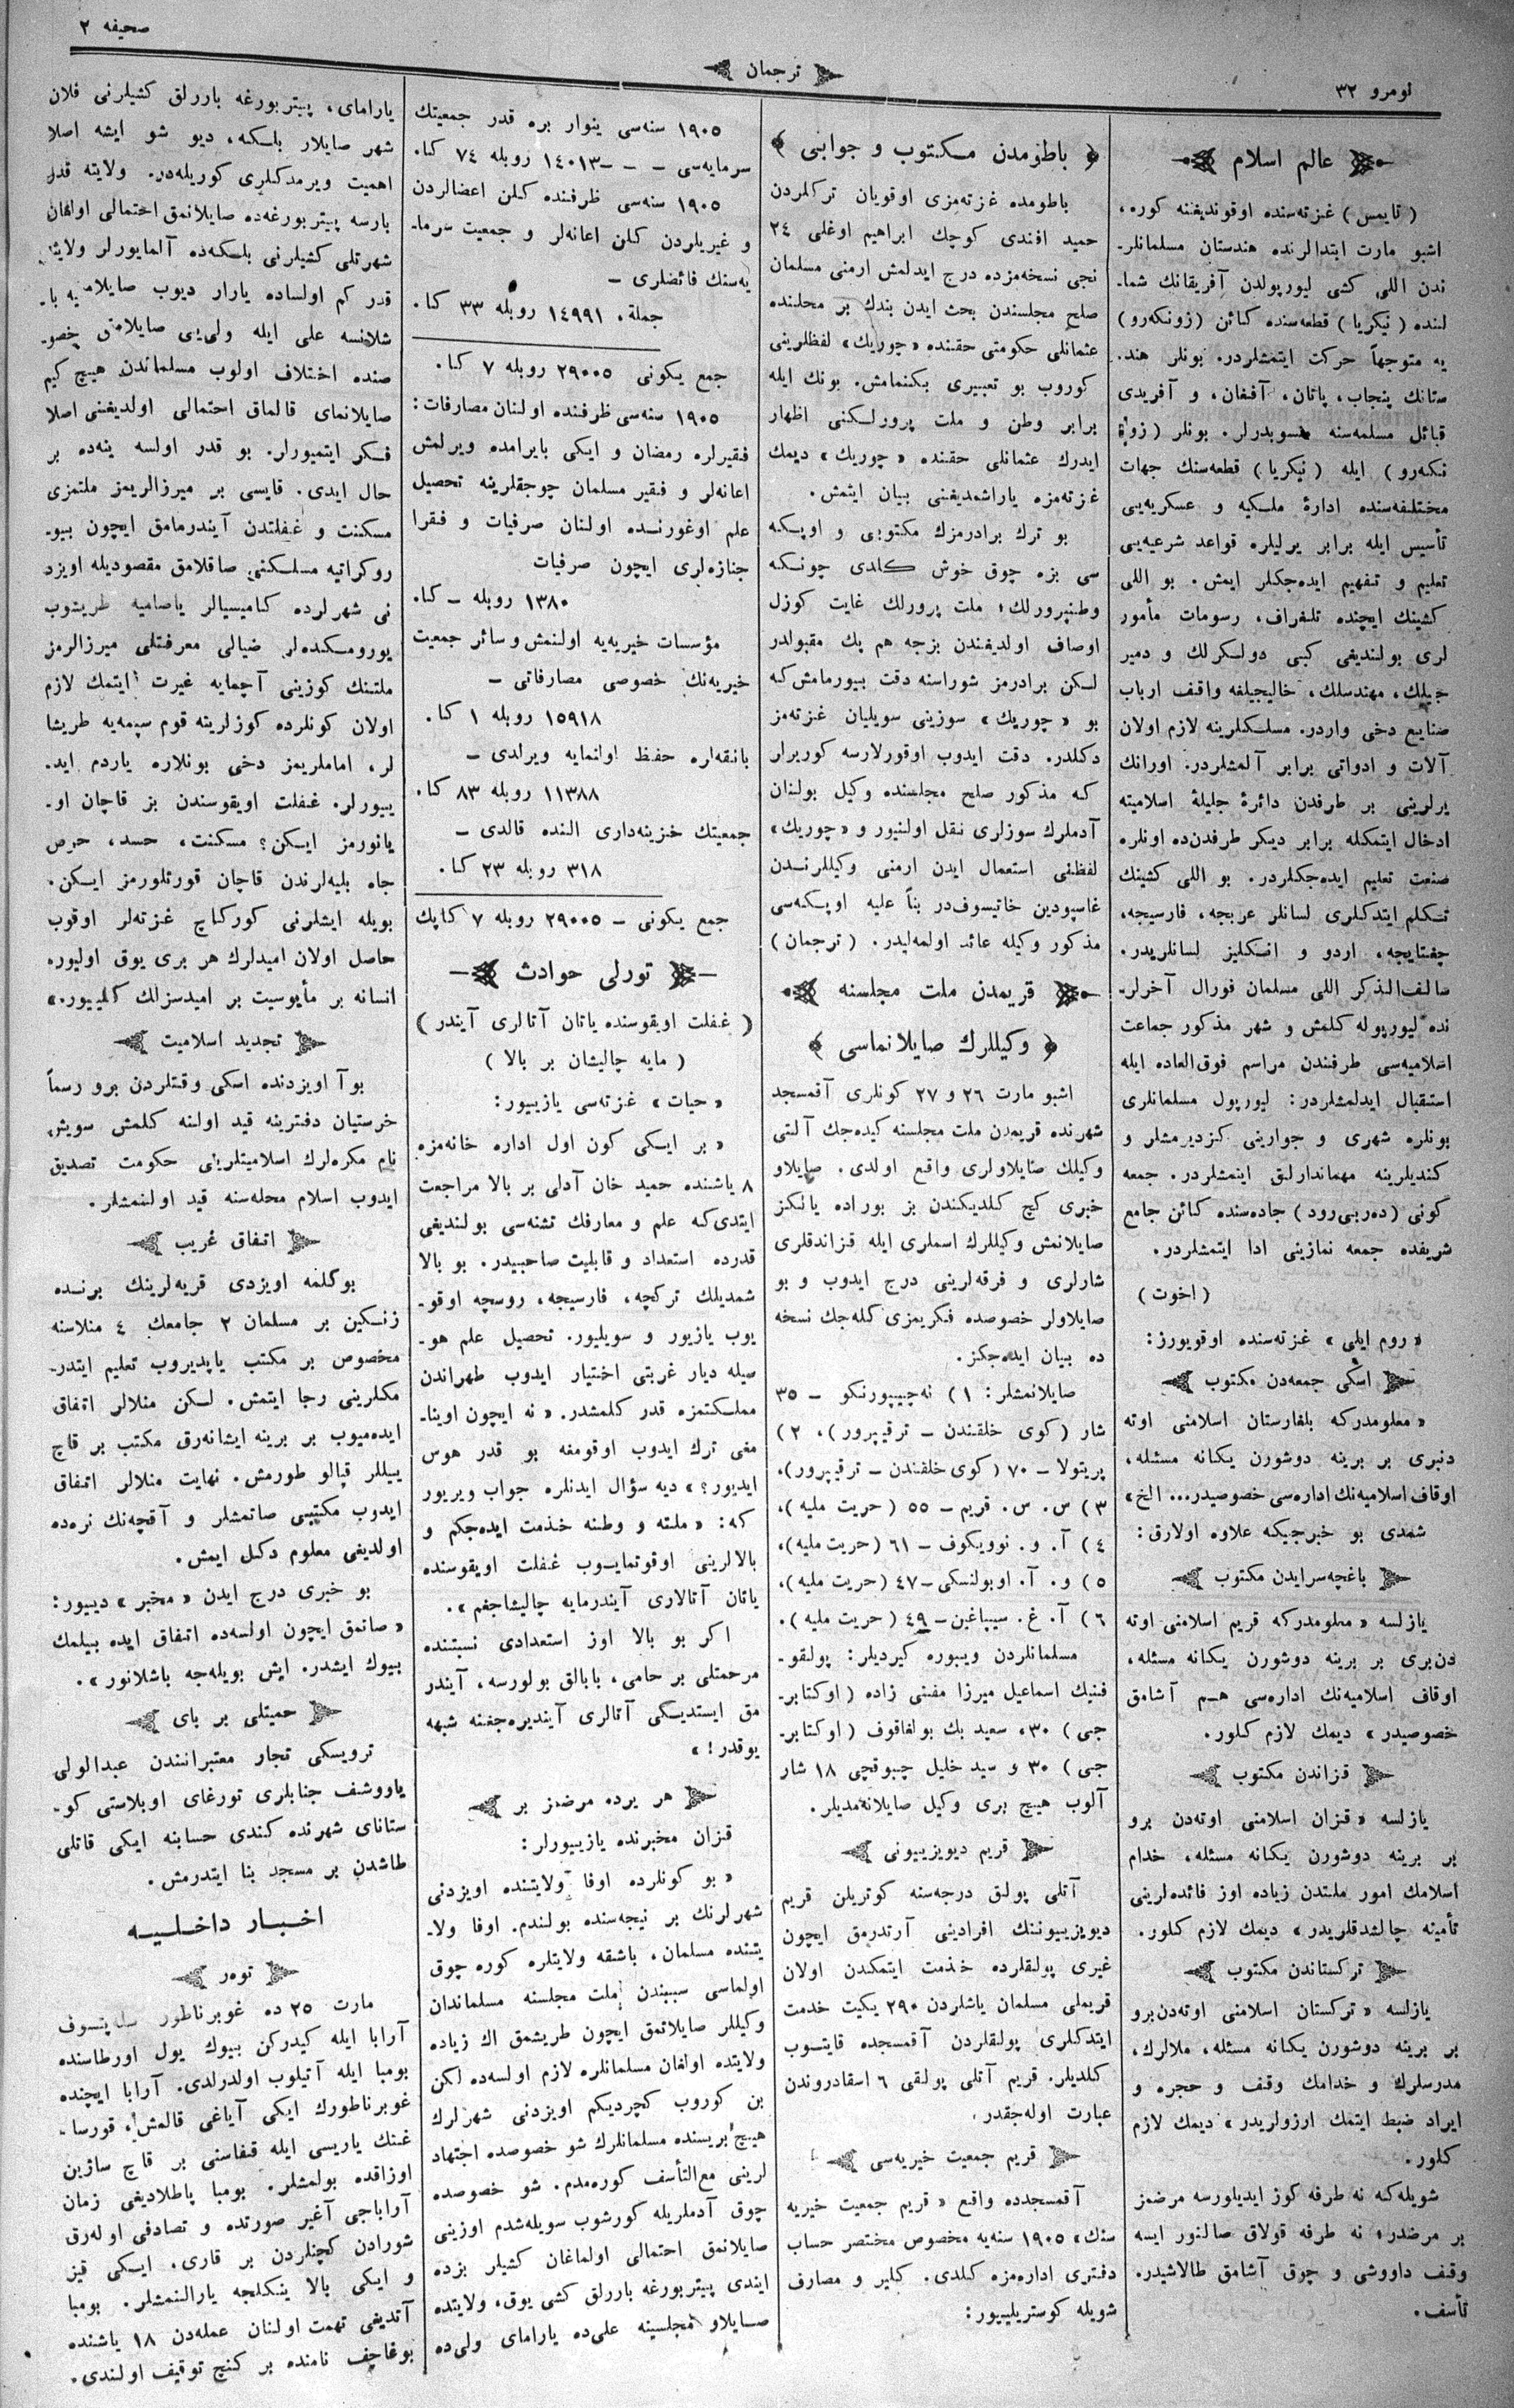 لومرو ٣٢
ترجمان
صحيفه ٢
عالم اسلام
( تايمس ) غزته‌سنده اوقونديغنه كوره،
اشبو مارت ابتدالرنده هندستان مسلمانلر-
ندن اللى كشى ليورپولدن آفريقانك شما-
لنده ( نيكريا ) قطعه‌سنده كائن (زونكه‌رو)
يه متوجهاً حركت ايتمشلردر. بونلر هند.
ستانك پنجاب، پاتان، آفغان، و آفريدى
قبائل مسلمه‌سنه منسوبدرلر. بونلر (زو-
نكه‌رو) ايله (نيكريا) قطعه‌سنك جهات
مختلفه‌سنده ادارۀ ملكيه و عسكريه‌يى
تأسيس ايله برابر يرليلره قواعد شرعيه‌يى
تعليم و تفهيم ايده‌جكلر ايمش. بو اللى
كشينك ايچنده تلغراف، رسومات مأمور
لرى بولنديغى كبى دولكرلك و دمير
جيلك، مهندسلك، خاليجيلغه واقف ارباب
صنايع دخى واردر. مسلكلرينه لازم اولان
آلات و ادواتى برابر آلمشلردر. اورانك
يرلرينى بر طرفدن دائرۀ جليلۀ اسلاميته
ادخال ايتمكله برابر ديكر طرفدن‌ده اونلره
صنعت تعليم ايده‌جكلردر. بو اللى كشينك
تكلم ايتدكلرى لسانلر عربجه، فارسيجه،
چغتايجه، اردو و انكليز لسانلريدر.
سالف‌الذكر اللى مسلمان فورال آخرلر-
نده ليورپوله كلمش و شهر مذكور جماعت
اسلاميه‌سى طرفندن مراسم فوق‌العاده ايله
استقبال ايدلمشلردر: ليورپول مسلمانلرى
بونلره شهرى و جوارينى كزديرمشلر و
كنديلرينه مهماندارلق ايتمشلردر. جمعه
كونى (ده‌ربى‌رود) جاده‌سنده كائن جامع
شريفده جمعه نمازينى ادا ايتمشلردر.
( اخوت )
« روم ايلى » غزته‌سنده اوقويورز:
اسكى جمعه‌دن مكتوب
« معلومدركه بلغارستان اسلامنى اوته
دنبرى بر برينه دوشورن يكانه مسئله،
اوقاف اسلاميه‌نك اداره‌سى خصوصيدر... الخ»
شمدى بو خبرجيكه علاوه اولارق:
باغچه‌سرايدن مكتوب
يازلسه « معلومدركه قريم اسلامنى اوته
دن‌برى بر برينه دوشورن يكانه مسئله،
اوقاف اسلاميه‌نك اداره‌سى هم آشامق
خصوصيدر » ديمك لازم كلور.
قزاندن مكتوب
يازلسه « قزان اسلامنى اوته‌دن برو
بر برينه دوشورن يكانه مسئله، خدام
اسلامك امور ملتدن زياده اوز فائده‌لرينى
تأمينه چالشدقلريدر » ديمك لازم كلور.
تركستاندن مكتوب
يازلسه « تركستان اسلامنى اوته‌دن‌برو
بر برينه دوشورن يكانه مسئله، ملالرك،
مدرسلرك و خدامك وقف و حجره و
ايراد ضبط ايتمك ارزولريدر » ديمك لازم
كلور.
شويله‌كه نه طرفه كوز ايديلورسه مرضمز
بر مرضدر؛ نه طرفه قولاق صالنور ايسه
وقف داووشى و چوق آشامق طالاشيدر.
تأسف.
باطومدن مكتوب و جوابى
باطومده غزته‌مزى اوقويان تركلردن
حميد افندى كوچك ابراهيم اوغلى ٢٤
نجى نسخه‌مزده درج ايدلمش ارمنى مسلمان
صلح مجلسندن بحث ايدن بندك بر محلنده
عثمانلى حكومتى حقنده «چوريك» لفظلرينى
كوروب بو تعبيرى بكنمامش. بونك ايله
برابر وطن و ملت پرورلكنى اظهار
ايدرك عثمانلى حقنده « چوريك » ديمك
غزته‌مزه ياراشمديغنى بيان ايتمش.
بو ترك برادرمزك مكتوبى و اوپكه
سى بزه چوق خوش كلدى چونكه
وطنپرورلك، ملت پرورلك غايت كوزل
اوصاف اولديغندن بزجه هم پك مقبولدر
لكن برادرمز شوراسنه دقت بيورمامش‌كه
بو « چوريك » سوزينى سويليان غزته‌مز
دكلدر. دقت ايدوب اوقورلارسه كوررلر
كه مذكور صلح مجلسنده وكيل بولنان
آدملرك سوزلرى نقل اولنيور و «چوريك»
لفظنى استعمال ايدن ارمنى وكيللرندن
غاسپودين خاتيسوف‌در بناً عليه اوپكه‌سى
مذكور وكيله عائد اولمه‌ليدر. ( ترجمان )
قريمدن ملت مجلسنه
وكيللرك صايلانماسى
اشبو مارت ٢٦ و ٢٧ كونلرى آقمسجد
شهرنده قريمدن ملت مجلسنه كيده‌جك آلتى
وكيلك صايلاولرى واقع اولدى. صايلاو
خبرى كچ كلديكندن بز بوراده يالكز
صايلانمش وكيللرك اسملرى ايله قزاندقلرى
شارلرى و فرقه‌لرينى درج ايدوب و بو
صايلاولر خصوصده فكريمزى كله‌جك نسخه
ده بيان ايده‌جكز.
صايلانمشلر: ١) نه‌چيپورنكو – ٣٥
شار (كوى خلقندن – ترقيپرور)، ٢)
پريتولا – ٧٠ (كوى خلقندن – ترقيپرور)،
٣) س. س. قريم – ٥٥ (حريت مليه)،
٤) آ. و. نوويكوف – ٦١ (حريت مليه)،
٥) و. آ. اوبولنسكى – ٤٧ (حريت مليه)،
٦) آ. غ. سيپياغين – ٤٩ (حريت مليه).
مسلمانلردن ويبوره كيرديلر: پولقو-
فنيك اسماعيل ميرزا مفتى زاده (اوكتابر-
جى) ٣٠، سعيد بك بولغاقوف (اوكتابر-
جى) ٣٠ و سيد خليل چبوقچى ١٨ شار
آلوب هيچ برى وكيل صايلانه‌مديلر.
قريم ديويزييونى
آتلى پولق درجه‌سنه كوتريلن قريم
ديويزييوننك افرادينى آرتدرمق ايچون
غيرى پولقلرده خذمت ايتمكدن اولان
قريملى مسلمان ياشلردن ٢٩٠ يكيت خدمت
ايتدكلرى پولقلردن آقمسجده قايتسوب
كلديلر. قريم آتلى پولقى ٦ اسقادروندن
عبارت اوله‌جقدر.
قريم جمعيت خيريه‌سى
آقمسجدده واقع « قريم جمعيت خيريه
سنك » ١٩٠٥ سنه‌يه مخصوص مختصر حساب
دفترى اداره‌مزه كلدى. كلير و مصارف
شويله كوستريلييور:
١٩٠٥ سنه‌سى ينوار بره قدر جمعيتك
سرمايه‌سى – – –١٤٠١٣ روبله ٧٤ كبا.
١٩٠٥ سنه‌سى ظرفنده كلن اعضالردن
و غيريلردن كلن اعانه‌لر و جمعيت سرما-
يه‌سنك فائضلرى –
جمله، ١٤٩٩١ روبله ٣٣ كبا.
جمع يكونى ٢٩٠٠٥ روبله ٧ كبا.
١٩٠٥ سنه‌سى ظرفنده اولنان مصارفات:
فقيرلره رمضان و ايكى بايرامده ويرلمش
اعانه‌لر و فقير مسلمان چوجقلرينه تحصيل
علم اوغورنده اولنان صرفيات و فقرا
جنازه‌لرى ايچون صرفيات
١٣٨٠ روبله – كبا.
مؤسسات خيريه‌يه اولنمش و سائر جمعيت
خيريه‌نك خصوصى مصارفاتى –
١٥٩١٨ روبله ١ كبا.
بانقه‌لره حفظ اولنمايه ويرلدى –
١١٣٨٨ روبله ٨٣ كبا.
جمعيتك خزينه‌دارى النده قالدى –
٣١٨ روبله ٢٣ كبا.
جمع يكونى – ٢٩٠٠٥ روبله ٧ كاپك
تورلى حوادث
( غفلت اويقوسنده ياتان آتالرى آيندر )
( مايه چاليشان بر بالا )
« حيات » غزته‌سى يازييور:
« بر ايكى كون اول اداره خانه‌مزه
٨ ياشنده حميد خان آدلى بر بالا مراجعت
ايتدى‌كه علم و معارفك تشنه‌سى بولنديغى
قدرده استعداد و قابليت صاحبيدر. بو بالا
شمديلك تركچه، فارسيجه، روسچه اوقو-
يوب يازيور و سويليور. تحصيل علم هو-
سيله ديار غربتى اختيار ايدوب طهراندن
مملكتمزه قدر كلمشدر. « نه ايچون اوينا-
مغى ترك ايدوب اوقومغه بو قدر هوس
ايدیور؟ » ديه سؤال ايدنلره جواب ويريور
كه: « ملته و وطنه خذمت ايده‌جكم و
بالالرينى اوقوتمايوب غفلت اويقوسنده
ياتان آتالارى آيندرمايه چاليشاجغم ».
اكر بو بالا اوز استعدادى نسبتنده
مرحمتلى بر حامى، بابالق بولورسه، آيندر
مق ايستديكى آتالرى آينديره‌جغنه شبهه
يوقدر! »
هر يرده مرضمز بر
قزان مخبرنده يازييورلر:
« بو كونلرده اوفا ولايتنده اويزدنى
شهرلرنك بر نيجه‌سنده بولندم. اوفا ولا-
يتنده مسلمان، باشقه ولايتلره كوره چوق
اولماسى سببندن ملت مجلسنه مسلماندان
وكيللر صايلاتمق ايچون طريشمق اك زياده
ولايتده اولغان مسلمانلره لازم اولسه‌ده لكن
بن كوروب كچرديكم اويزدنى شهرلرك
هيچ بريسنده مسلمانلرك شو خصوصده اجتهاد
لرينى مع‌التأسف كوره‌مدم. شو خصوصده
چوق آدملريله كورشوب سويله‌شدم اوزينى
صايلانمق احتمالى اولماغان كشيلر بزده
ايندى پيتربورغه بارلق كشى يوق، ولايتده
صايلاو مجلسينه على‌ده يارامای ولى‌ده
يارامای، پيتربورغه بارلق كشيلرنى فلان
شهر صايلار بلسكه، ديو شو ايشه اصلا
اهميت ويرمدكلرى كوريله‌در. ولايته قدر
بارسه پيتربورغه‌ده صايلانمق احتمالى اولغان
شهرتلى كشيلرنى بلسكه‌ده آلمايورلر ولايتـ
قدر كم اولساده يارار ديوب صايلامـيه با-
شلانسه على ايله ولى‌يى صايلامق خصو-
صنده اختلاف اولوب مسلماندن هيچ كيم
صايلانمای قالماق احتمالى اولديغنى اصلا
فكر ايتميورلر. بو قدر اولسه ينه‌ده بر
حال ايدى. قايسى بر ميرزالريمز ملتمزى
مسكنت و غفلتدن آيندرمامق ايچون بيو-
روكراتيه مسلكنى صاقلامق مقصوديله اويزد
نى شهرلرده كاميسيالر ياصاميه طريشوب
يورومكده‌لر ضيالى معرفتلى ميرزالرمز
ملتنك كوزينى آچمايه غيرت ايتمك لازم
اولان كونلرده كوزلرينه قوم سپمه‌يه طريشا
لر، اماملريمز دخى بونلاره ياردم ايد.
ييورلر. غفلت اويقوسندن بز قاچان او-
يانورمز ايكن؟ مسكنت، حسد، حرص
جاه بليه‌لرندن قاچان قورتلورمز ايكن.
بويله ايشلرنى كوركاچ غزته‌لر اوقوب
حاصل اولان اميدلرك هر برى يوق اوليور.
انسانه بر مأيوسيت بر اميدسزلك كلييور.»
تجديد اسلاميت
بوآ اويزدنده اسكى وقتلردن برو رسماً
خرستيان دفترينه قيد اولنه كلمش سويش
نام مكره‌لرك اسلاميتلرينى حكومت تصديق
ايدوب اسلام محله‌سنه قيد اولنمشلر.
اتفاق غريب
بوكلمه اويزدى قريه‌لرينك برنده
زنكين بر مسلمان ٢ جامعك ٤ منلاسنه
مخصوص بر مكتب ياپديروب تعليم ايتدر-
مكلرينى رجا ايتمش. لكن منلالر اتفاق
ايده‌ميوب بر برينه ايشانه‌رق مكتب بر قاچ
ييللر قپالو طورمش. نهايت منلالر اتفاق
ايدوب مكتبى صاتمشلر و آقچه‌نك نره‌ده
اولديغى معلوم دكل ايمش.
بو خبرى درج ايدن « مخبر » دييور:
« صاتمق ايچون اولسه‌ده اتفاق ايده بيلمك
بيوك ايشدر. ايش بويله‌جه باشلانور ».
حميتلى بر باى
ترويسكى تجار معتبرانندن عبدالولى
ياووشف جنابلرى تورغاى اوبلاستى كو-
ستاناى شهرنده كندى حسابنه ايكى قاتلى
طاشدن بر مسجد بنا ايتدرمش.
اخبار داخليه
توه‌ر
مارت ٢٥ ده غوبرناطور سله‌پتسوف
آرابا ايله كيدركن بيوك يول اورطاسنده
بومبا ايله آتيلوب اولدرلدى. آرابا ايچنده
غوبرناطورك ايكى آياغى قالمش، قورسا-
غنك ياريسى ايله قفاسنى بر قاچ ساژين
اوزاقده بولمشلر. بومبا پاطلاديغى زمان
آراباجى آغير صورتده و تصادفى اوله‌رق
شورادن كچنلردن بر قارى، ايكى قيز
و ايكى بالا ينكلجه يارالنمشلر. بومبا
آتديغى تهمت اولنان عمله‌دن ١٨ ياشنده
بوغاچف نامنده بر كنج توقيف اولندى.